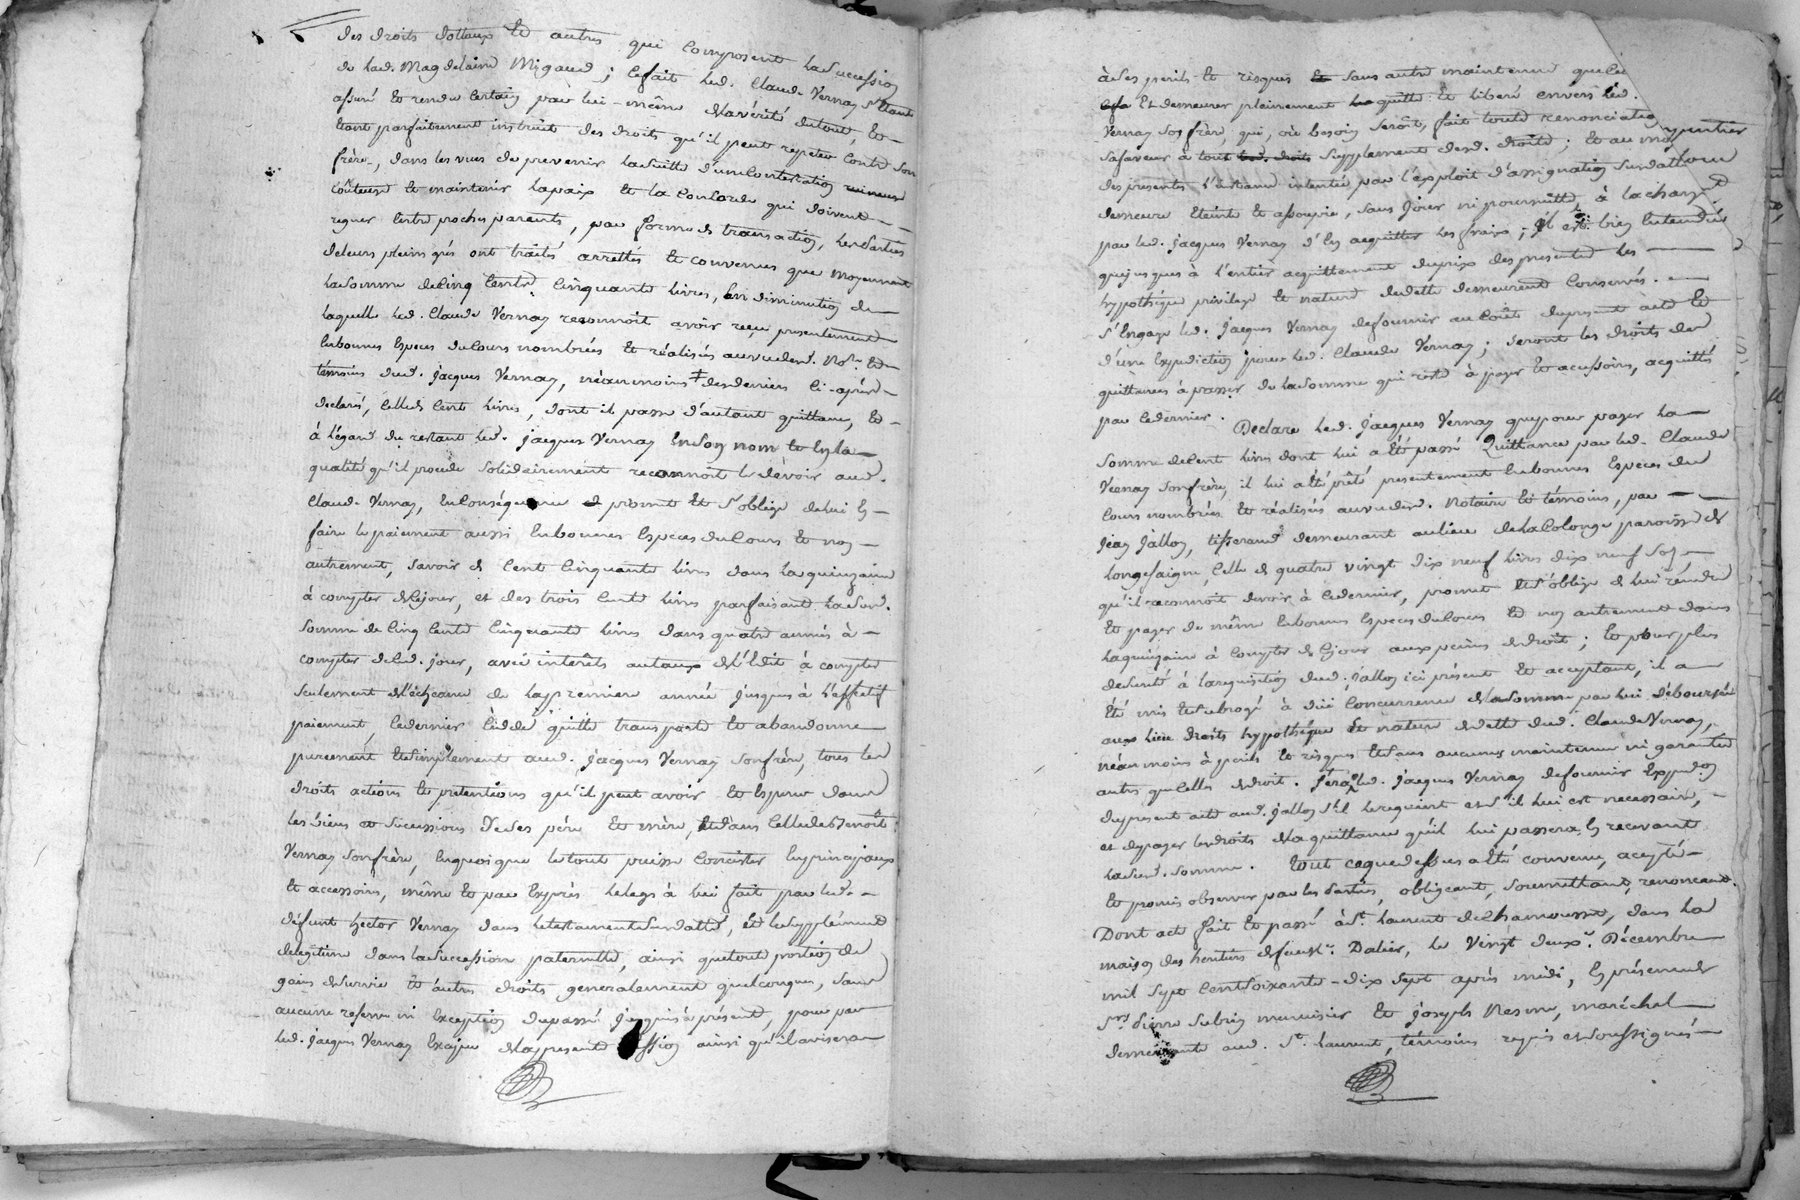 des droits dottaux et autres qui Composent la Succession
de lad. Magdelaine Migaud; Ce fait led. Claude Vernay s'etant
assuré et rendu Certain par lui-même de la vérité du tout, et
étant parfaitement instruit des droits qu'il peut repeter Contre son
frère, dans les vues de prevenir la Suitte d'une Contestation ruineuse
Coûteuse et maintenir la paix et la Concorde qui doivent
regner Entre proches parents, par forme de transaction, les Parties
de leurs pleins grés ont traités arrettés et convenus que moyennant
la Somme de Cinq Cents Cinquante livres, En diminution de
laquelle led. Claude Vernay reconnoit avoir reçu presentement
En bonnes Especes du Cours nombrées et réalisées au vu desd. Nore. et
témoins dud. jacques Vernay, néanmoins des deniers Ci-après
declarés, Celle de Cent livres, dont il passe d'autant quittance, et
à l'égard du restant led. jacques Vernay En Son nom et En la
qualité qu'il procede Solidairement reconnoit le devoir aud.
Claude Vernay, En Conséquence promet et s'oblige de lui En
faire le paiement aussi En bonnes Especes du Cours et non
autrement, Savoir de Cent Cinquante livres dans la quinzaine
à compter de Ce jour, et des trois Cents livres parfaisant la Susd.
Somme de Cinq Cents Cinquante livres dans quatre années à
compter de Ced. jour, avec intérêts au taux de l'Edit à compter
Seulement de l'échéance de la premiere année jusques à l'effectif
paiement, Ce dernier Cede quitte transporte et abandonne
purement et Simplement aud. jacques Vernay Son frère, tous les
droits actions et prétentions qu'il peut avoir et Esperer dans
les biens et Successions de Ses père et mère, Et dans Celle de Benoît
Vernay Son frère, En quoi que le tout puisse Consister En principaux
et accessoires, même et par Exprès le legs à lui fait par led.
défunt hector Vernay dans le testament Susdatté, et le Supplément
de legitime dans la Succession paternelle, ainsi que toute portion de
gains de Survie et autres droits generalement quelconques, Sans
aucune reserve ni Exception du passé jusques à présent, pour par
led. jacques Vernay Exciper de la presente Cession ainsi qu'il avisera
à Ses perils et risques Sans autre maintenue que de
Et demeurer pleinement quitte et libéré envers led.
Vernay Son frère, qui, où besoin Seroit, fait toute renonciation
à Sa faveur à tout Supplement desd. droits; et au moyen
des presentes l'instance intentée par l'exploit d'assignation Susdatté
demeure Eteinte et assoupie, Sans jours ni poursuitte, à la charge
par led. jacques Vernay d'En acquitter les frais; Il est bien Entendu
que jusques à l'entier acquittement du prix des presentes les
hypothéque privilege et nature de dette demeurent Conservés.
S'Engage led. jacques Vernay de fournir au Coût du present acte et
d'une Expedition pour led. Claude Vernay; Seront les droits de
quittances à passer de la Somme qui reste à payer et accessoires, acquittés
par Ce dernier. Declare led. jacques Vernay que pour payer la
Somme de Cent livres dont lui a été passé Quittance par led. Claude
Vernay Son frère, il lui a été prêté presentement En bonnes Especes du
Cours nombrées et réalisées au vu desd. Notaire et témoins, par
Jean Jallon, tisserand demeurant au lieu de la Colonge paroisse de
longessaigne, Celle de quatre vingt dix neuf livres dix neuf Sols
qu'il reconnoit devoir à Ce dernier, promet Et s'oblige de lui rendre
et payer de même En bonnes Especes du Cours et non autrement dans
la quinzaine à Compter de Ce jour aux peines de droit; Et pour plus
de Sureté à la requisition dud. jallon ici présent et acceptant, il a
été mis et Subrogé à due Concurrence de la Somme par lui déboursée
aux lieu droits hypothéque et nature de dette dud. Claude Vernay,
néanmoins à perils et risques Et Sans aucunes maintenue ni garantie
autres que Celles de droit. fera led. jacques Vernay de fournir Expedon
du present acte aud. jallon S'il le requiert et S'il lui est necessaire,
et de payer les droits de la quittance qu'il lui passera En recevant
lad. Somme. Tout ce que dessus a été convenu, accepté
et promis observer par les Parties, obligeant, Soumettant, renonceant.
Dont acte fait et passé à St. laurent de Chamousset, dans la
maison des heritiers de feu Sr. Dalier, le Vingt deuxe. Décembre
mil Sept Cent Soixante-dix Sept après midi, En présence de
Srs. Pierre Subrin menuisier et joseph Nesme, maréchal
demeurants aud. St. laurent, témoins requis et Soussignés